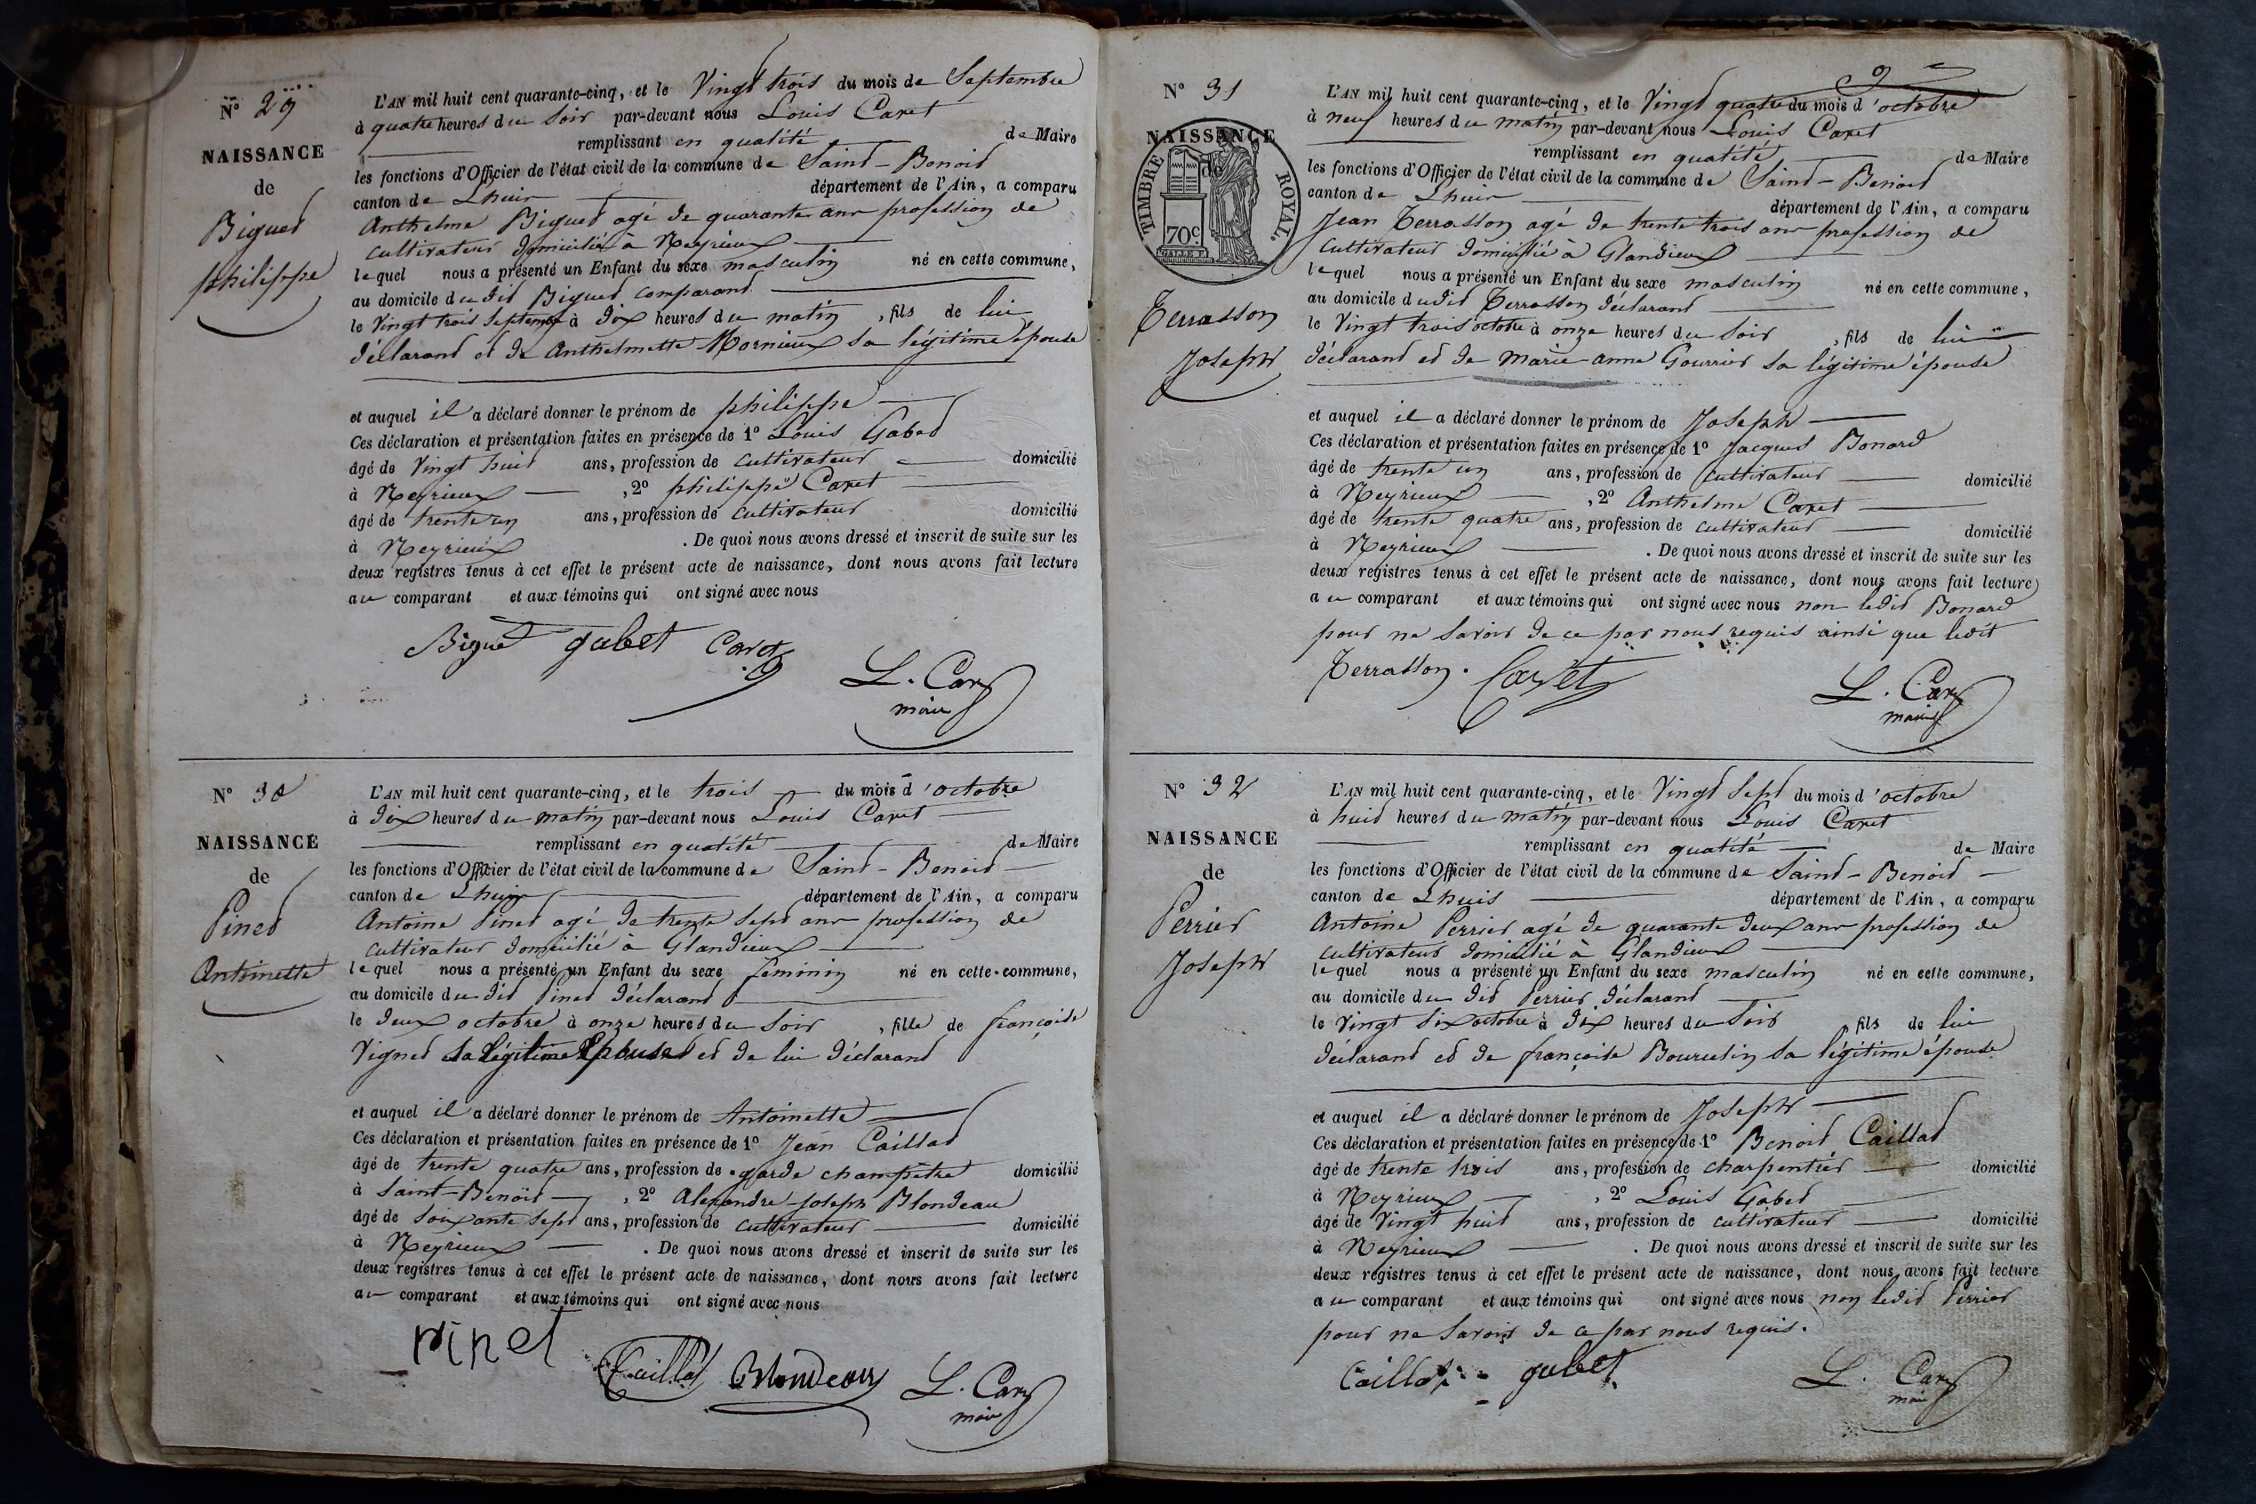 N° 29
NAISSANCE
de
Biguet
philippe
L'AN mil huit cent quarante-cinq, et le Vingt trois du mois de Septembre
à quatre heures du Soir par-devant nous Louis Caret
remplissant en qualité de Maire
les fonctions d'Officier de l'état civil de la commune de Saint-Benoit
canton de Lhuis département de l'Ain, a comparu
Anthelme Biguet agé de quarante ans profession de
cultivateur domicilié à Neyrieux
lequel nous a présenté un Enfant du sexe masculin né en cette commune,
au domicile du dit Biguet comparant
le Vingt trois Septembre à dix heures du matin, fils de lui
déclarant et de Anthelmette Mornieux sa légitime épouse
et auquel il a déclaré donner le prénom de philippe
Ces déclaration et présentation faites en présence de 1° Louis Gabet
âgé de Vingt huit ans, profession de cultivateur domicilié
à Neyrieux, 2° philippe Caret
âgé de trente un ans, profession de cultivateur domicilié
à Neyrieux. De quoi nous avons dressé et inscrit de suite sur les
deux registres tenus à cet effet le présent acte de naissance, dont nous avons fait lecture
au comparant et aux témoins qui ont signé avec nous
Biguet gabet Caret
L. Caret
maire
N° 30
NAISSANCE
de
Pinet
Antoinette
L'AN mil huit cent quarante-cinq, et le trois du mois d'octobre
à dix heures du matin par-devant nous Louis Caret
remplissant en qualité de Maire
les fonctions d'Officier de l'état civil de la commune de Saint-Benoit
canton de Lhuis département de l'Ain, a comparu
Antoine Pinet agé de trente sept ans profession de
cultivateur domicilié à Glandieux
lequel nous a présenté un Enfant du sexe féminin né en cette commune,
au domicile du dit Pinet déclarant
le deux octobre à onze heures du Soir, fille de françoise
Vignet sa légitime Epouse et de lui déclarant
et auquel il a déclaré donner le prénom de Antoinette
Ces déclaration et présentation faites en présence de 1° Jean Caillat
âgé de trente quatre ans, profession de garde champêtre domicilié
à Saint-Benoit, 2° Alexandre Joseph Blondeau
âgé de Soixante Sept ans, profession de cultivateur domicilié
à Neyrieux. De quoi nous avons dressé et inscrit de suite sur les
deux registres tenus à cet effet le présent acte de naissance, dont nous avons fait lecture
au comparant et aux témoins qui ont signé avec nous
Pinet
Caillat Blondeau L. Caret
maire
N° 31
NAISSANCE
de
TIMBRE ROYAL.
70c
Terrasson
Joseph
L'AN mil huit cent quarante-cinq, et le Vingt quatre du mois d'octobre
à neuf heures du matin par-devant nous Louis Caret
remplissant en qualité de Maire
les fonctions d'Officier de l'état civil de la commune de Saint-Benoit
canton de Lhuis département de l'Ain, a comparu
Jean Terrasson agé de trente trois ans profession de
cultivateur domicilié à Glandieux
lequel nous a présenté un Enfant du sexe masculin né en cette commune,
au domicile dudit Terrasson déclarant
le Vingt trois octobre à onze heures du Soir, fils de lui
déclarant et de marie-anne Gourrier sa légitime épouse
et auquel il a déclaré donner le prénom de Joseph
Ces déclaration et présentation faites en présence de 1° Jacques Bonard
âgé de trente un ans, profession de cultivateur domicilié
à Neyrieux, 2° Anthelme Caret
âgé de trente quatre ans, profession de cultivateur domicilié
à Neyrieux. De quoi nous avons dressé et inscrit de suite sur les
deux registres tenus à cet effet le présent acte de naissance, dont nous avons fait lecture
au comparant et aux témoins qui ont signé avec nous non ledit Bonard
pour ne Savoir de ce par nous requis ainsi que ledit
Terrasson. Caret
L. Caret
maire
N° 32
NAISSANCE
de
Perrier
Joseph
L'AN mil huit cent quarante-cinq, et le Vingt Sept du mois d'octobre
à huit heures du matin par-devant nous Louis Caret
remplissant en qualité de Maire
les fonctions d'Officier de l'état civil de la commune de Saint-Benoit
canton de Lhuis département de l'Ain, a comparu
Antoine Perrier agé de quarante deux ans profession de
cultivateur domicilié à Glandieux
lequel nous a présenté un Enfant du sexe masculin né en cette commune,
au domicile du dit Perrier déclarant
le Vingt Six octobre à dix heures du Soir fils de lui
déclarant et de françoise Bourcelin sa légitime épouse
et auquel il a déclaré donner le prénom de Joseph
Ces déclaration et présentation faites en présence de 1° Benoit Caillat
âgé de trente trois ans, profession de charpentier domicilié
à Neyrieux, 2° Louis Gabet
âgé de Vingt huit ans, profession de cultivateur domicilié
à Neyrieux. De quoi nous avons dressé et inscrit de suite sur les
deux registres tenus à cet effet le présent acte de naissance, dont nous avons fait lecture
au comparant et aux témoins qui ont signé avec nous non ledit Perrier
pour ne Savoir de ce par nous requis.
Caillat gabet L. Caret
maire